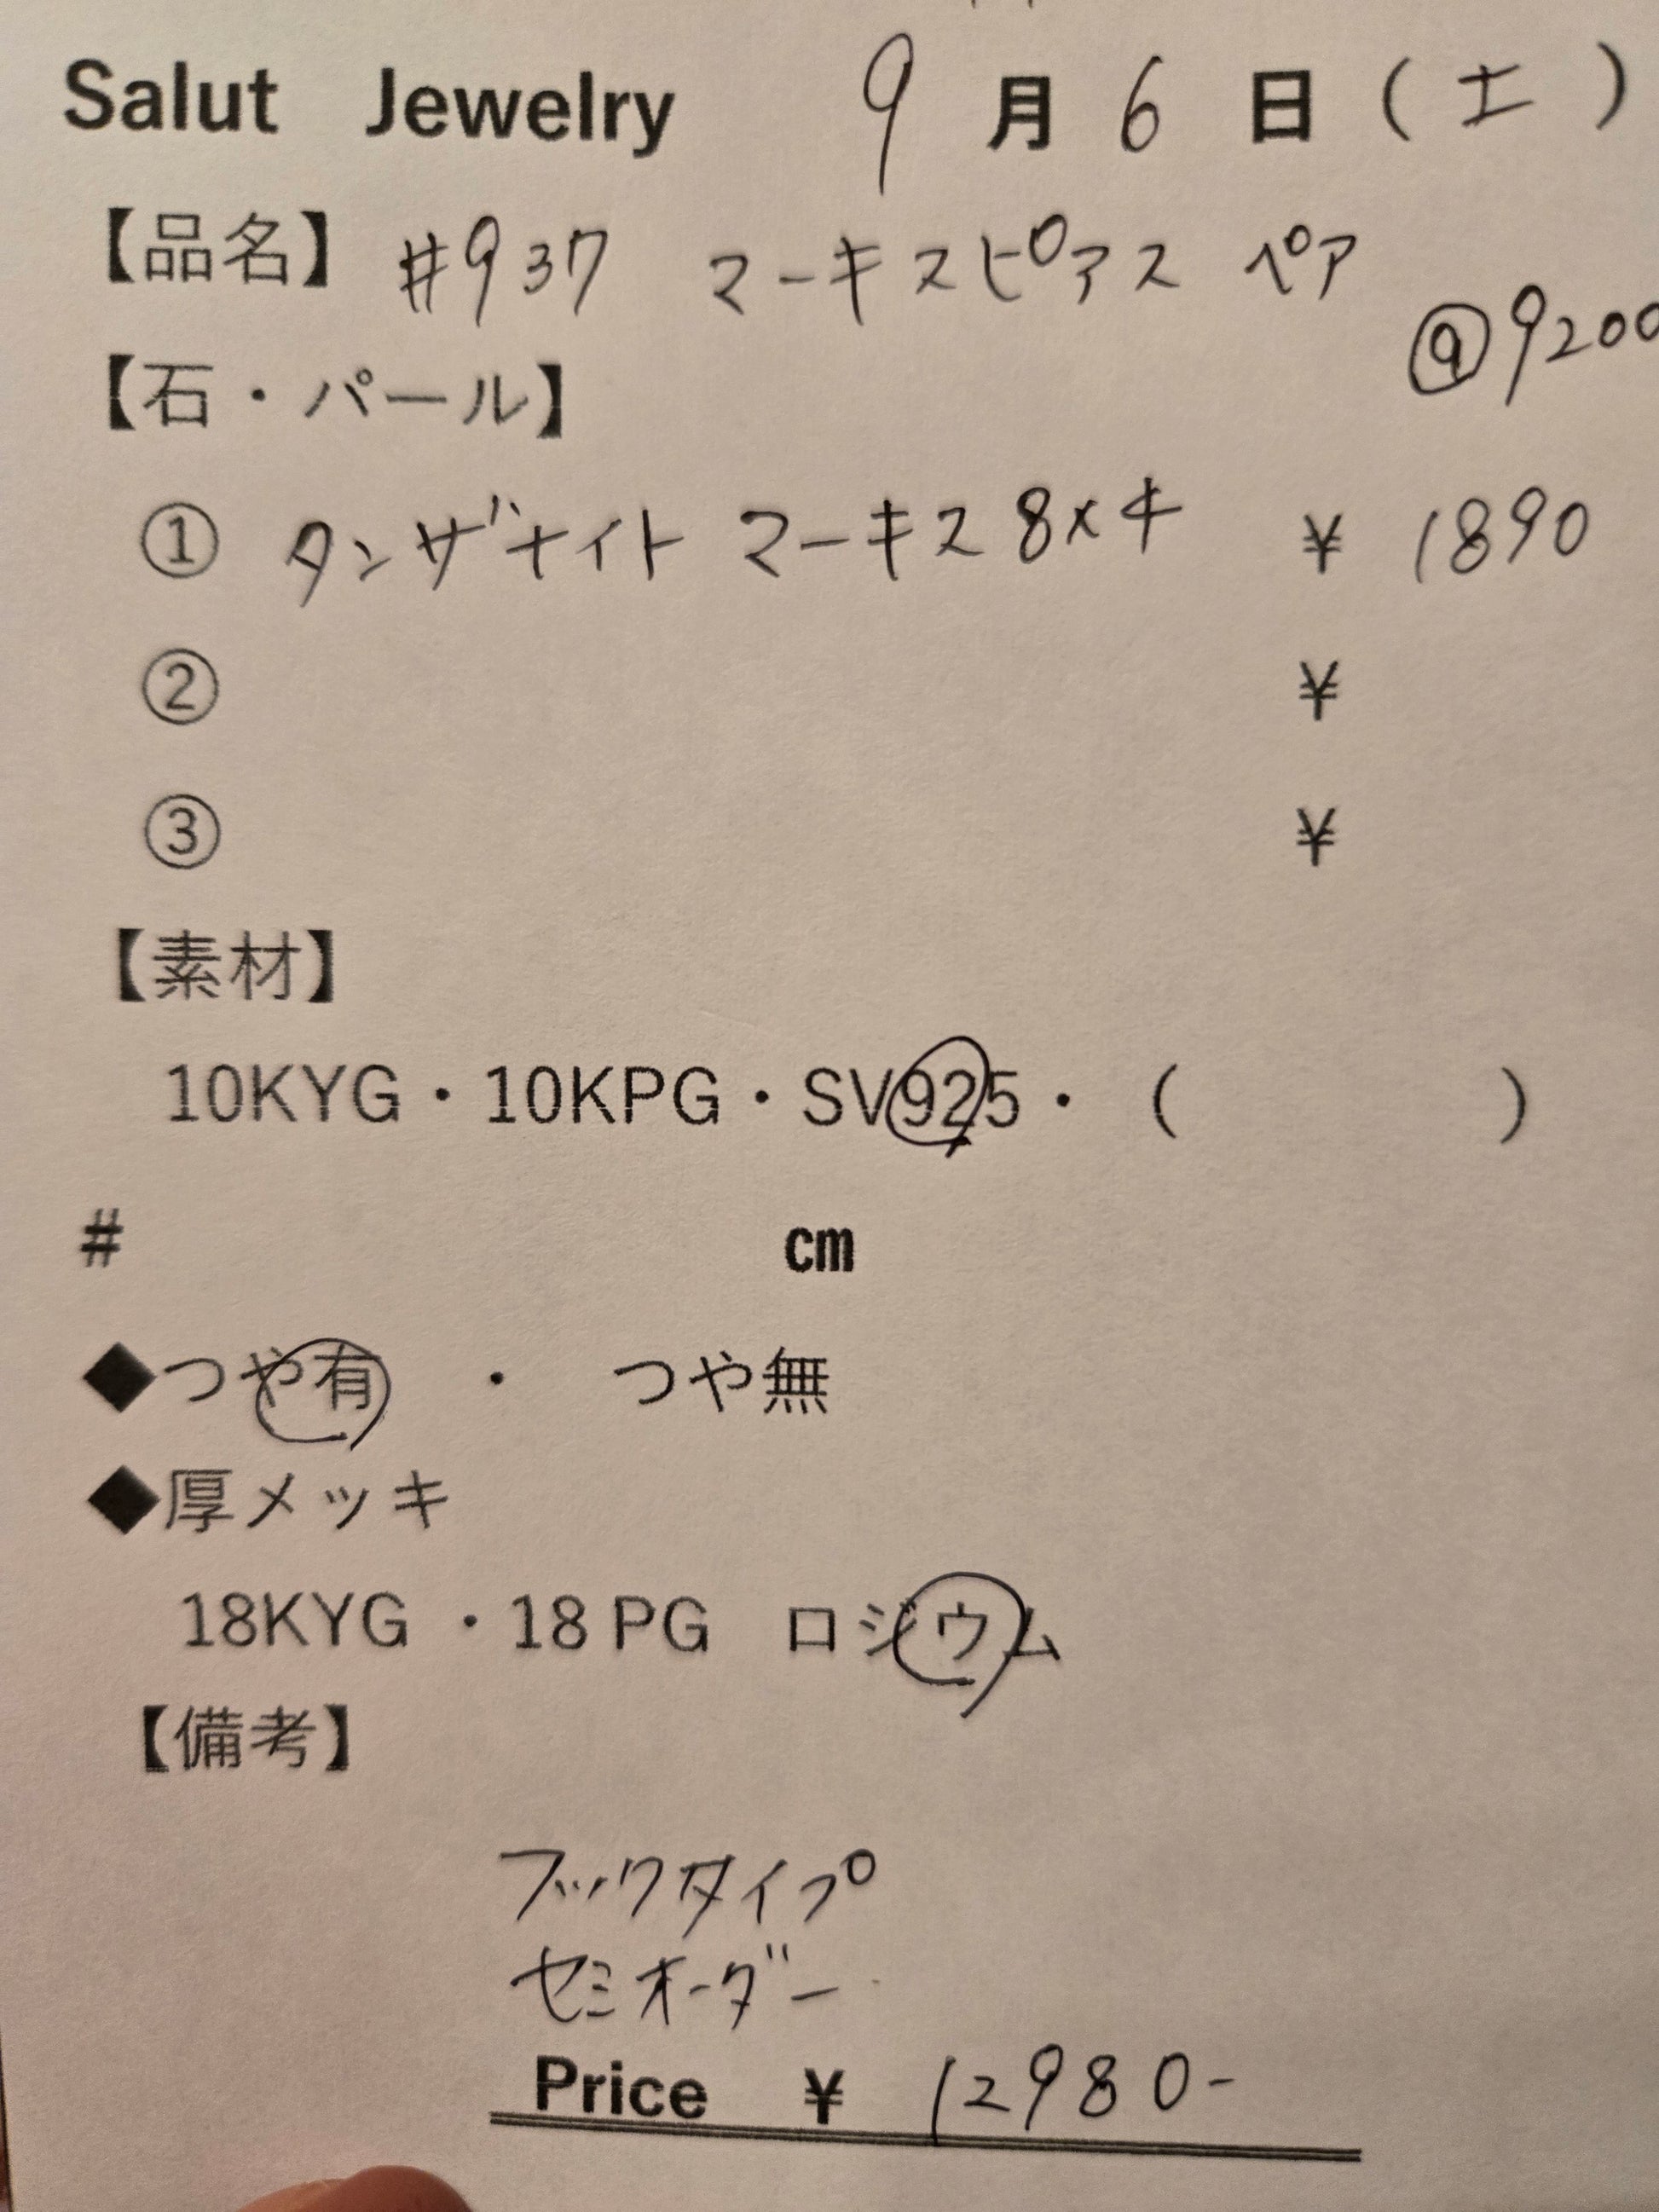 Salut Jewelry 9月6日(土)
【品名】 #937 マーキスピアス ペア
@9200
【石・パール】
① タンザナイト マーキス8×4 ¥1890
② ¥
③ ¥
【素材】
10KYG・10KPG・SV925・( )
# cm
◆つや有 ・ つや無
◆厚メッキ
18KYG ・18 PG ロジウム
【備考】
フックタイプ
セミオーダー
Price ¥ 12980-